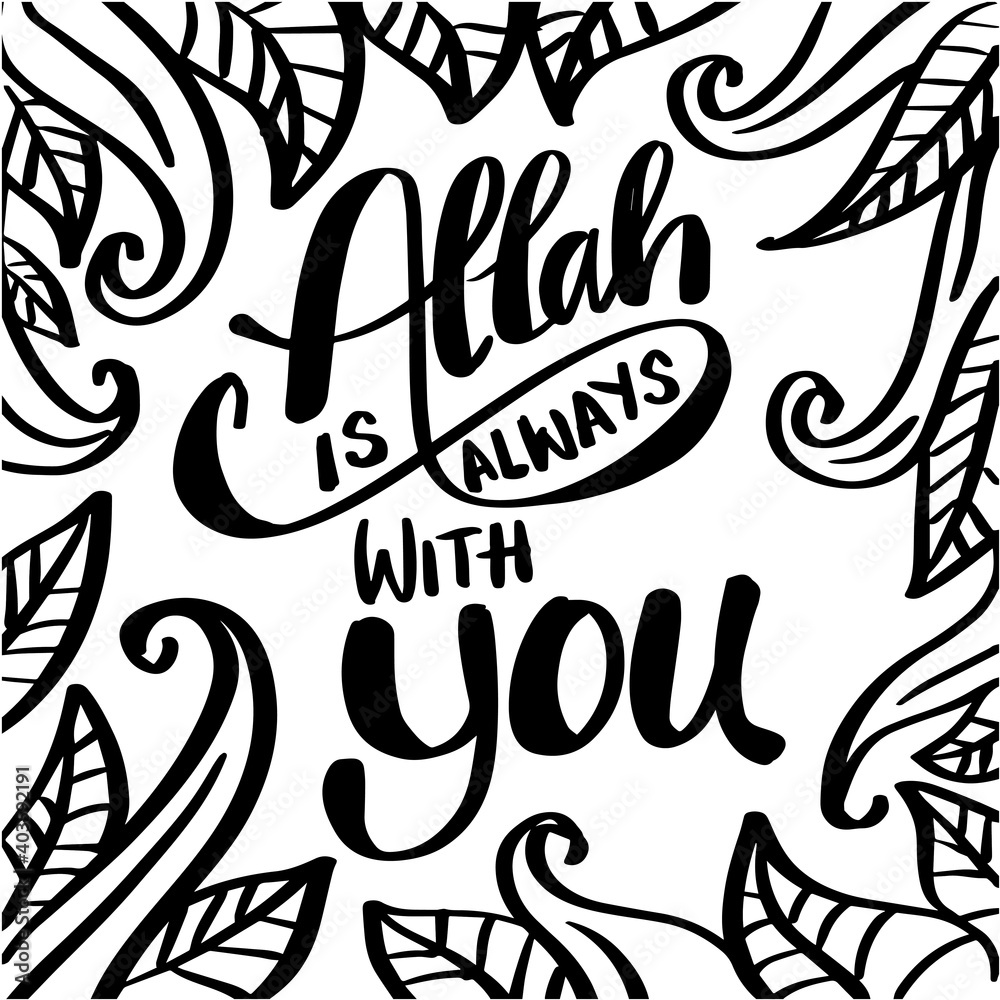 Allah
IS ALWAYS
WITH
you
Adobe Stock | #403992191